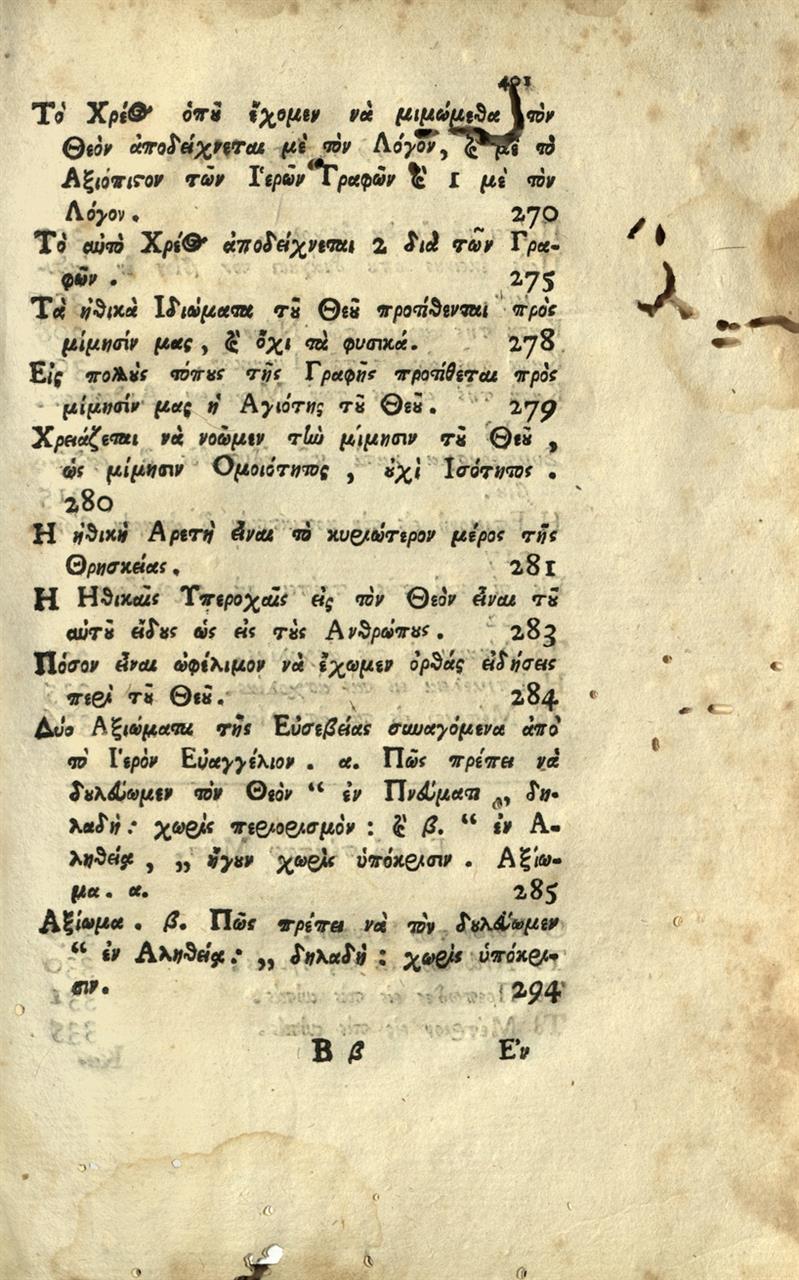 401
Τὸ Χρέος ὁποῦ ἔχομεν νὰ μιμώμεθα τὸν
Θεὸν ἀποδείχνεται μὲ τὸν Λόγον, ϗ μὲ τὸ
Αξιόπιστον τῶν Ι῾ερῶν Γραφῶν ϗ 1 μὲ τὸν
Λόγον. 270
Τὸ αὐτὸ Χρέος ἀποδείχνεται 2 διὰ τῶν Γρα-
φῶν. 275
Τὰ ἠθικὰ Ιδιώματα τοῦ Θεοῦ προτίθενται πρὸς
μίμησίν μας, ϗ ὄχι τὰ φυσικά. 278
Εἰς πολλοὺς τόπους τῆς Γραφῆς προτίθεται πρὸς
μίμησίν μας ἡ Αγιότης τοῦ Θεοῦ. 279
Χρειάζεται νὰ νοῶμεν τὴν μίμησιν τοῦ Θεοῦ,
ὡς μίμησιν Ομοιότητος, οὐχὶ Ισότητος.
280
Η ἠθικὴ Αρετὴ εἶναι τὸ κυριώτερον μέρος τῆς
Θρησκείας. 281
Η Ηθικαῖς Υπεροχαῖς εἰς τὸν Θεὸν εἶναι τοῦ
αὐτοῦ εἴδους ὡς εἰς τοὺς Ανθρώπους. 283
Πόσον εἶναι ὠφέλιμον νὰ ἔχωμεν ὀρθὰς εἰδήσεις
περὶ τοῦ Θεοῦ. 284
Δύο Αξιώματα τῆς Εὐσεβείας συναγόμενα ἀπὸ
τὸ Ι῾ερὸν Εὐαγγέλιον. α. Πῶς πρέπει νὰ
δουλεύωμεν τὸν Θεὸν “ ἐν Πνεύματι ,, δη-
λαδή: χωρὶς περιορισμὸν: ϗ β. “ ἐν Α-
ληθείᾳ, ,, ἤγουν χωρὶς ὑπόκρισιν. Αξίω-
μα. α. 285
Αξίωμα. β. Πῶς πρέπει νὰ τὸν δουλεύωμεν
“ ἐν Αληθείᾳ: ,, δηλαδή: χωρὶς ὑπόκρι-
σιν. 294
Β β Ε᾿ν